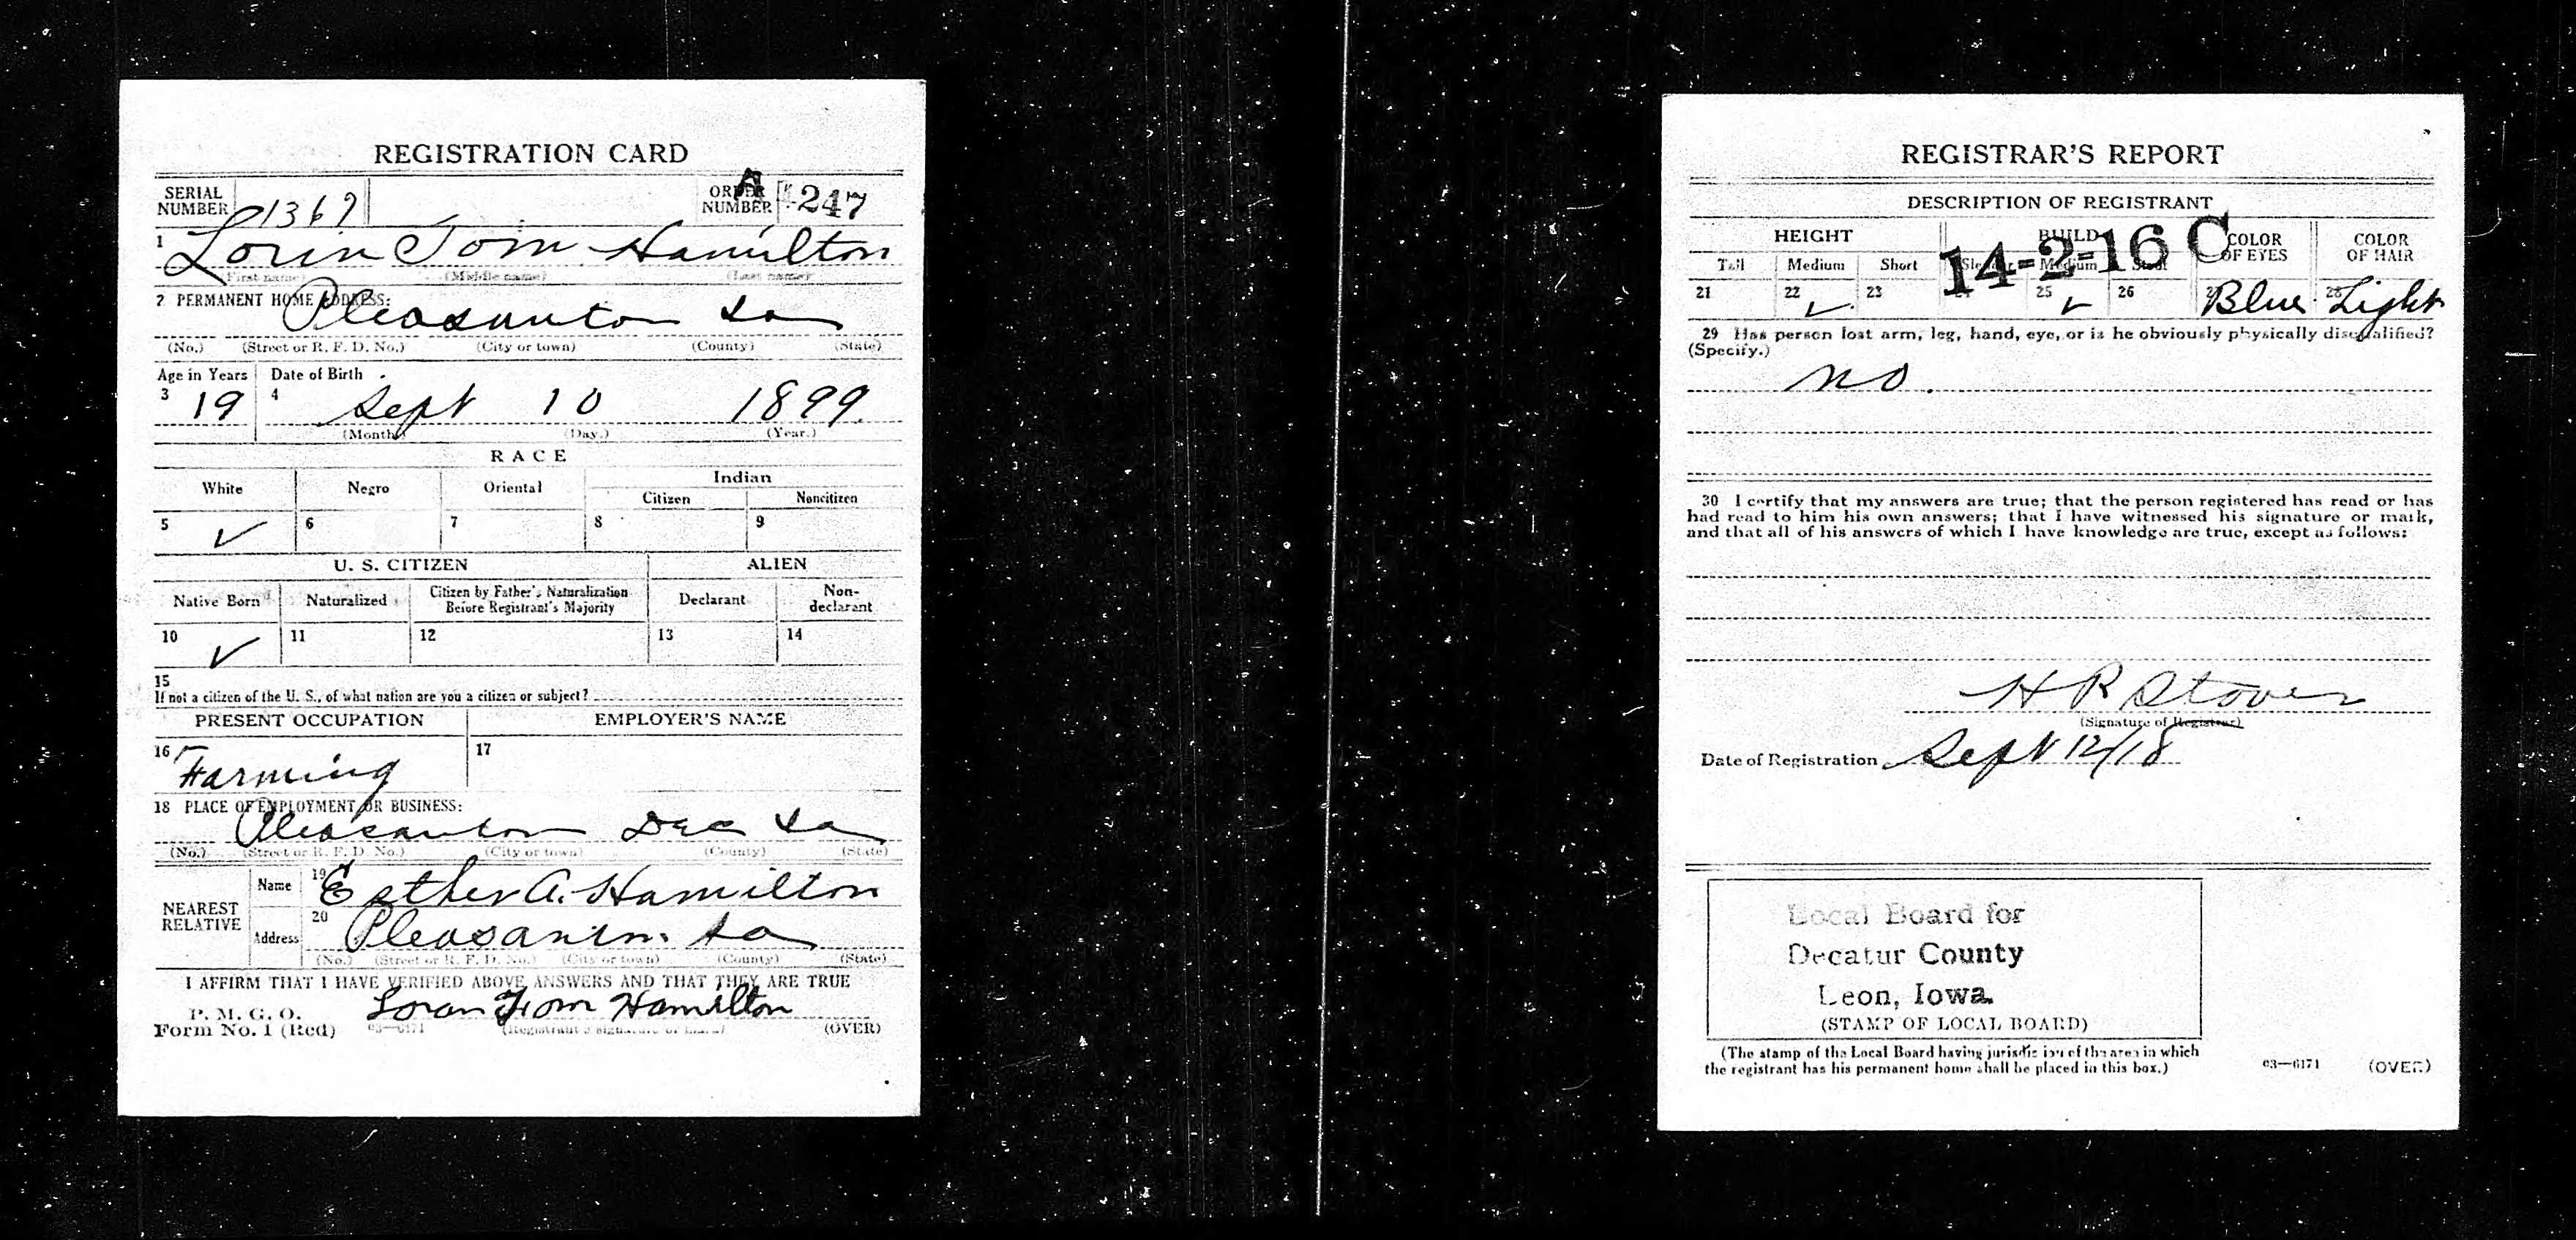 REGISTRATION CARD
SERIAL NUMBER 1367 ORDER NUMBER A 247
1 Lorin Tom Hamilton
(First name) (Middle name) (Last name)
2 PERMANENT HOME ADDRESS:
Pleasanton Ia
(No.) (Street or R. F. D. No.) (City or town) (County) (State)
Age in Years Date of Birth
3 19 4 Sept 10 1899
(Month) (Day.) (Year.)
RACE
White Negro Oriental Indian
Citizen Noncitizen
5 ✓ 6 7 8 9
U. S. CITIZEN ALIEN
Native Born Naturalized Citizen by Father's Naturalization Before Registrant's Majority Declarant Non-declarant
10 ✓ 11 12 13 14
15
If not a citizen of the U. S., of what nation are you a citizen or subject?
PRESENT OCCUPATION EMPLOYER'S NAME
16 Farming 17
18 PLACE OF EMPLOYMENT OR BUSINESS:
Pleasanton Dec Ia
(No.) (Street or R. F. D. No.) (City or town) (County) (State)
NEAREST RELATIVE
Name 19 Esther A. Hamilton
Address 20 Pleasanton Ia
(No.) (Street or R. F. D. No.) (City or town) (County) (State)
I AFFIRM THAT I HAVE VERIFIED ABOVE ANSWERS AND THAT THEY ARE TRUE
P. M. G. O.
Form No. 1 (Red) 03—6171 Loran Tom Hamilton
(Registrant's signature or mark) (OVER)
REGISTRAR'S REPORT
DESCRIPTION OF REGISTRANT
14-2-16 C
HEIGHT BUILD COLOR OF EYES COLOR OF HAIR
Tall Medium Short Slender Medium Stout
21 22 ✓ 23 24 25 ✓ 26 27 Blue 28 Light
29 Has person lost arm, leg, hand, eye, or is he obviously physically disqualified?
(Specify.)
no.
30 I certify that my answers are true; that the person registered has read or has
had read to him his own answers; that I have witnessed his signature or mark,
and that all of his answers of which I have knowledge are true, except as follows:
H R Stover
(Signature of Registrar)
Date of Registration Sept 12/18
Local Board for
Decatur County
Leon, Iowa.
(STAMP OF LOCAL BOARD)
(The stamp of the Local Board having jurisdiction of the area in which
the registrant has his permanent home shall be placed in this box.)
03—6171 (OVER)